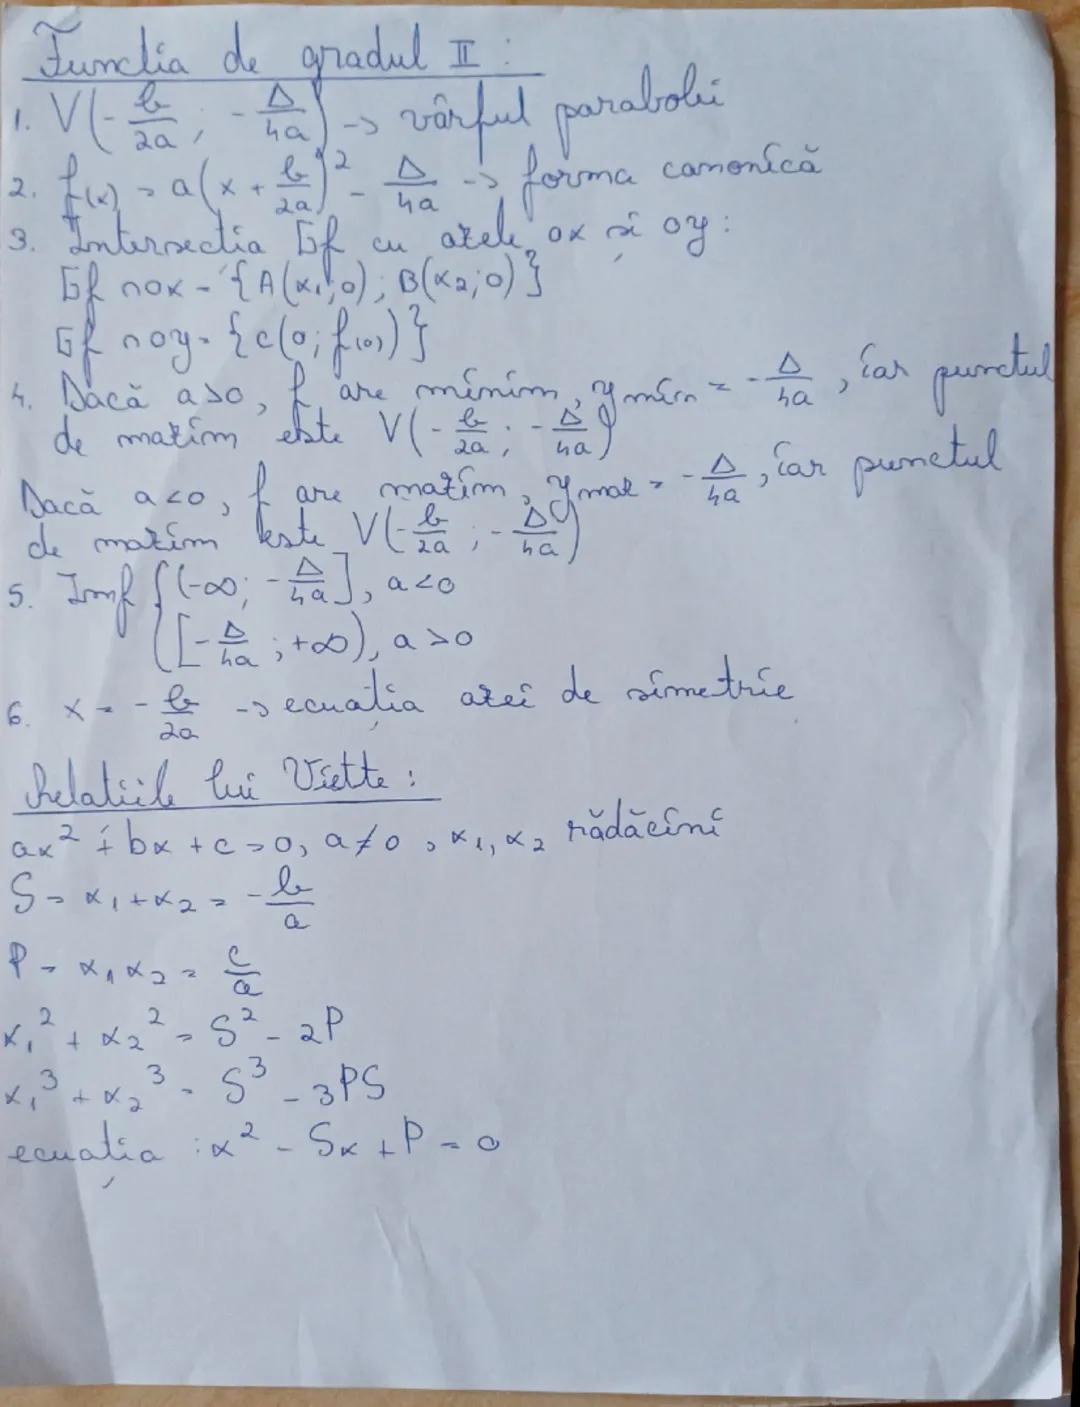 Funcția de gradul II :
1. V(-b/2a ; -Δ/4a) -> vârful parabolei
2. f(x) = a(x + b/2a)² - Δ/4a -> forma canonică
3. Intersectia Gf cu axele ox și oy :
Gf ∩ ox = {A(x₁;0) ; B(x₂;0)}
Gf ∩ oy = {c(0; f(0))}
4. Dacă a>0, f are minim, y min = -Δ/4a, iar punctul
de maxim este V(-b/2a ; -Δ/4a)
Dacă a<0, f are maxim, y max = -Δ/4a, iar punctul
de maxim este V(-b/2a ; -Δ/4a)
5. Imf { (-∞; -Δ/4a], a<0
[-Δ/4a ; +∞), a>0
6. x = -b/2a -> ecuația axei de simetrie
Relatiile lui Viette :
ax² + bx + c = 0, a≠0, x₁, x₂ rădăcini
S = x₁ + x₂ = -b/a
P = x₁ x₂ = c/a
x₁² + x₂² = S² - 2P
x₁³ + x₂³ = S³ - 3PS
ecuația : x² - Sx + P = 0